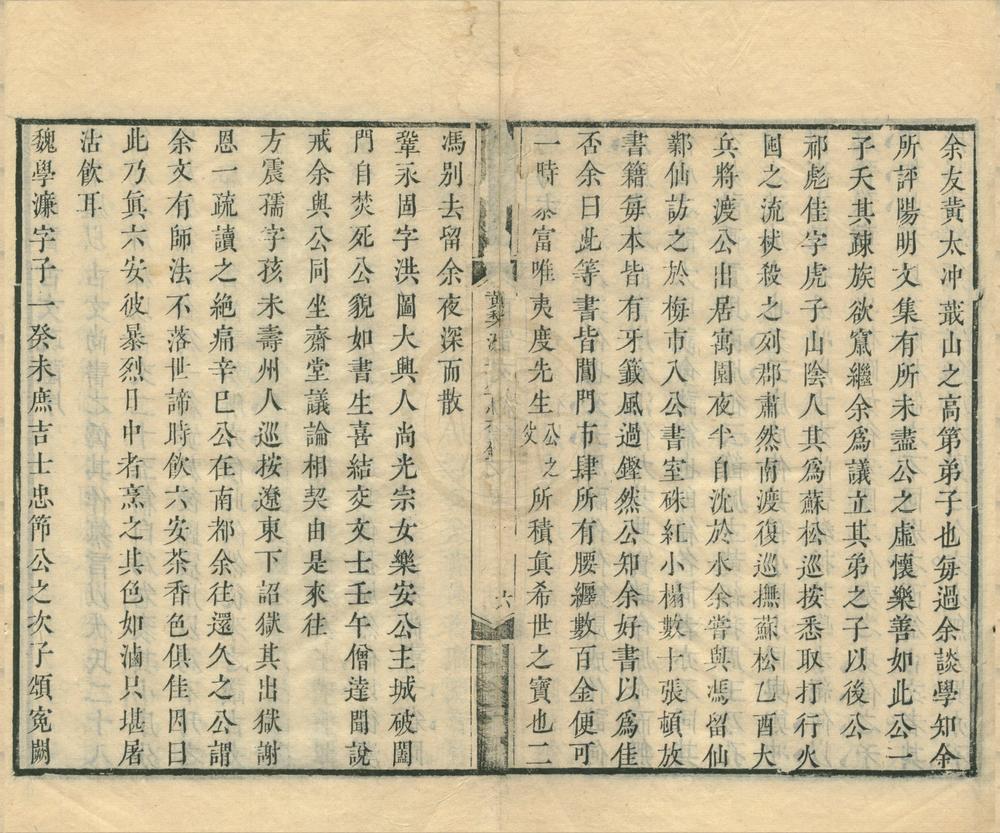 余友黃太冲蕺山之高第弟子也每過余談學知余
所評陽明文集有所未盡公之虛懷樂善如此公一
子夭其疎族欲窺繼余爲議立其弟之子以後公
祁彪佳字虎子山陰人其爲蘇松巡按悉取打行火
囤之流杖殺之列郡肅然南渡復巡撫蘇松乙酉大
兵將渡公出居寓園夜半自沈於水余嘗與馮留仙
鄴仙訪之於梅市入公書室硃紅小榻數十張頓放
書籍每本皆有牙籤風過鏗然公知余好書以爲佳
否余曰此等書皆閶門市肆所有腰纏數百金便可
一時暴富唯夷度先生公之父所積眞希世之寶也二
馮別去留余夜深而散
鞏永固字洪圖大興人尚光宗女樂安公主城破闔
門自焚死公貌如書生喜結交文士壬午僧逹聞說
戒余與公同坐齋堂議論相契由是來往
方震孺字孩未壽州人巡按遼東下詔獄其出獄謝
恩一疏讀之絶痛辛巳公在南都余往還久之公謂
余文有師法不落世諦時飲六安茶香色俱佳因曰
此乃眞六安彼暴烈日中者烹之其色如滷只堪屠
沽飲耳
魏學濂字子一癸未庶吉士忠節公之次子頌寃闕
六